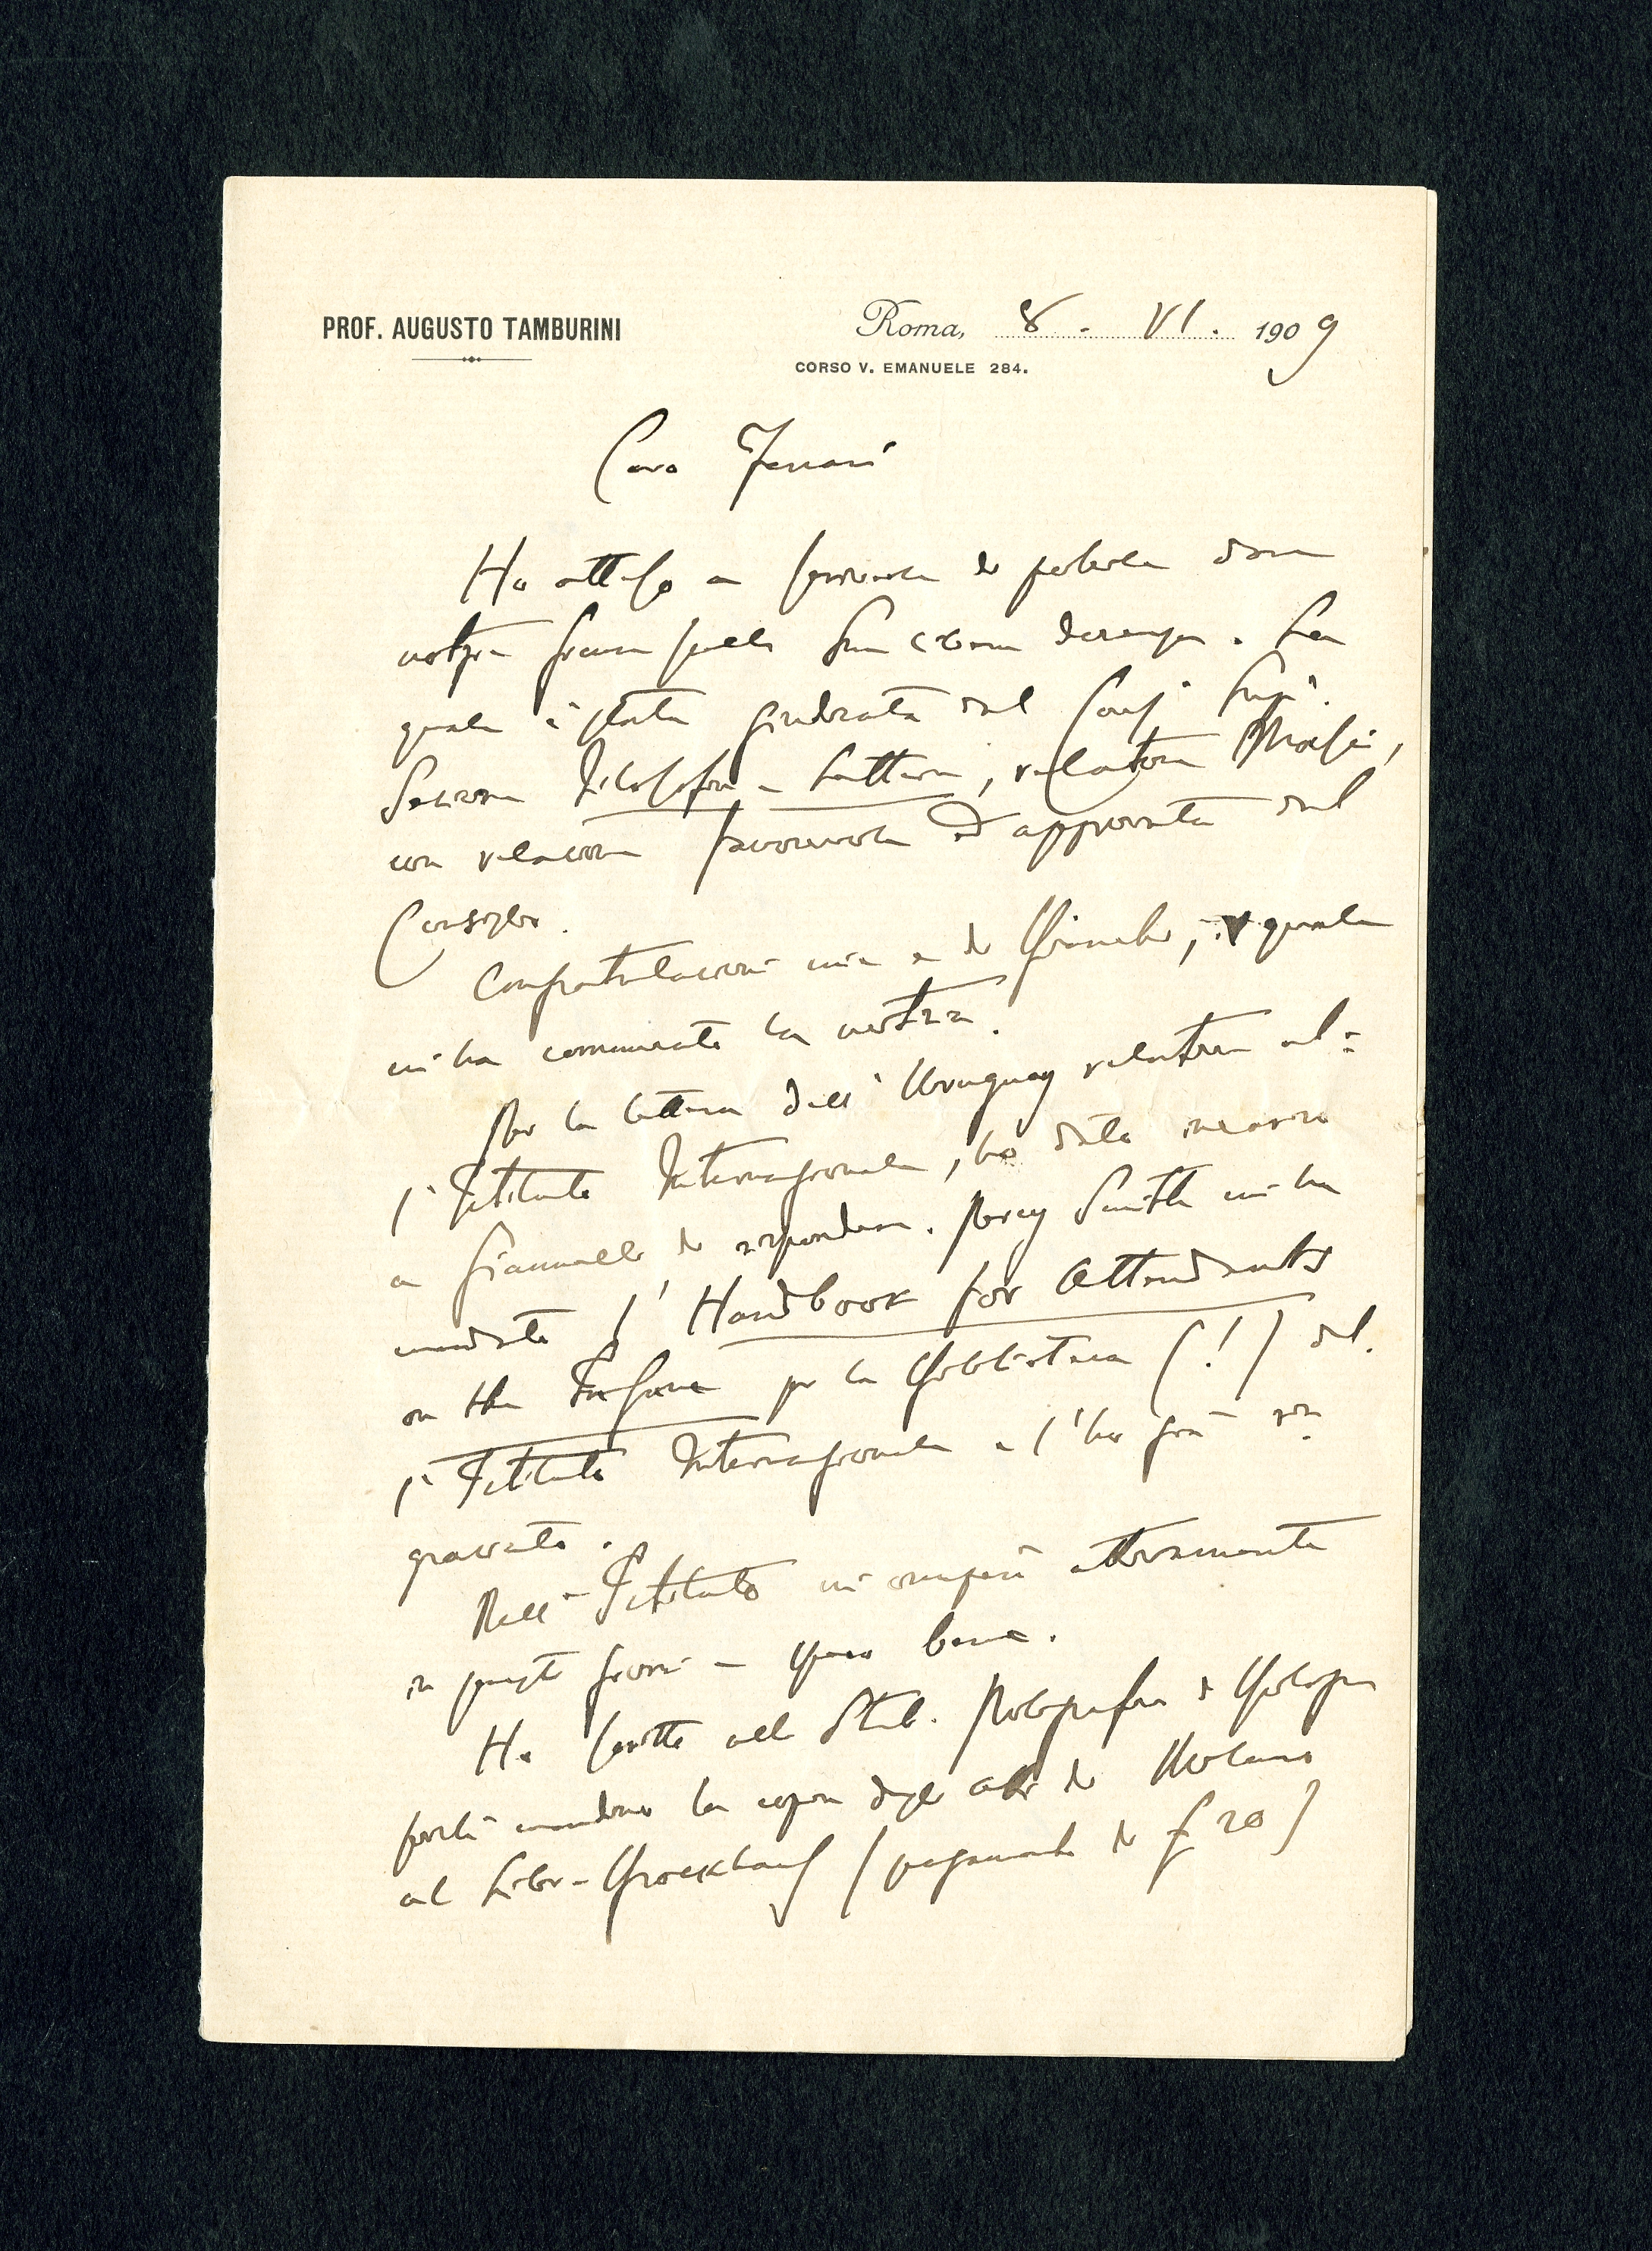 PROF. AUGUSTO TAMBURINI
Roma, 8 . VI . 1909
CORSO V. EMANUELE 284.
Caro Ferrari
Ho atteso a scriverle di poterle dare
notizia
quale è stata giudicata dal Cons. Sup.
Sezione Filosofia e Lettere, relatore Masci,
con relazione favorevole ed approvata dal
Consiglio.
Congratulazioni mie e di Bianchi, il quale
mi ha comunicato la notizia.
Per la lettera dell'Uruguay relativa al=
l'Istituto Internazionale, ho dato incarico
a Giannelli di rispondere. Percy Smith mi ha
mandato l'Handbook for Attendants
on the Insane per la Biblioteca (!) del=
l'Istituto Internazionale e l'ho già rin=
graziato.
Dell'Istituto mi occuperò attivamente
in questi giorni e spero bene.
Ho scritto allo Stab. Poligrafico di Bologna
perché mandino la copia degli Atti di Milano
al Libr. Brockhaus (pagamento di £ 20)